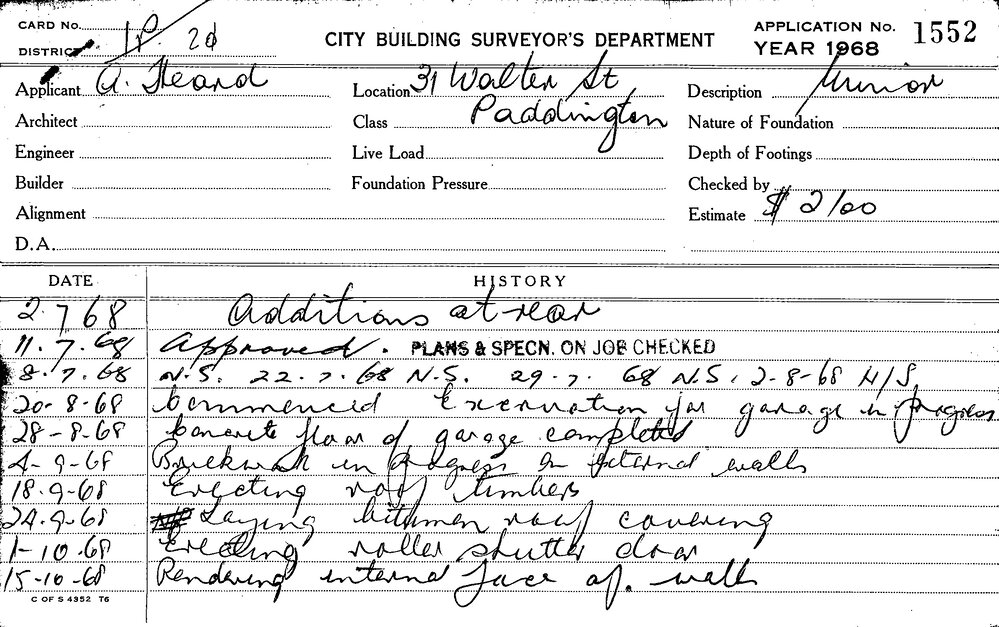 CARD No.
DISTRICT
CITY BUILDING SURVEYOR'S DEPARTMENT
APPLICATION No. 1552
YEAR 1968
Applicant A. Heard
Location 31 Walter St
Paddington
Description Minor
Architect
Class
Nature of Foundation
Engineer
Live Load
Depth of Footings
Builder
Foundation Pressure
Checked by
Alignment
Estimate $ 2100
D.A.
DATE HISTORY
2.7.68 Additions at rear
11.7.68 Approved. PLANS & SPECN. ON JOB CHECKED
8.7.68 N.S. 22.7.68 N.S. 29.7.68 N.S. 2-8-68 N/S
20-8-68 Commenced Excavation for garage in progress
28-8-68 Concrete floor of garage completed
4-9-68 Brickwork in progress on external walls
18.9-68 Erecting roof timbers
24.9.68 Laying bitumen roof covering
1-10.68 Erecting roller shutter door
15-10-68 Rendering internal face of. walls
C OF S 4352 76